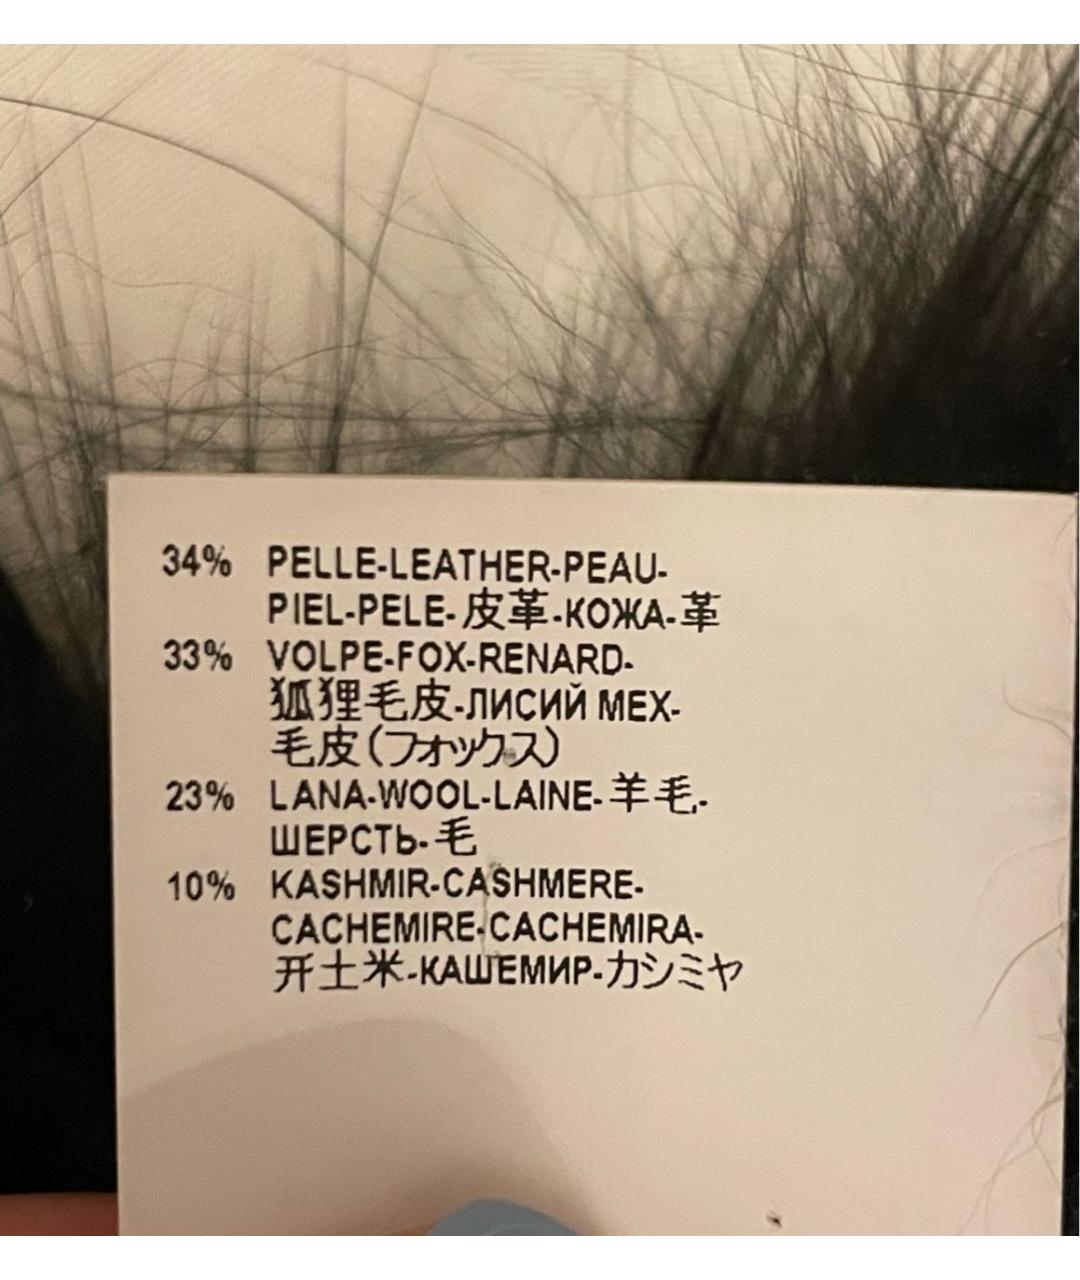 34% PELLE-LEATHER-PEAU-
PIEL-PELE-皮革-КОЖА-革
33% VOLPE-FOX-RENARD-
狐狸毛皮-ЛИСИЙ МЕХ-
毛皮(フォックス)
23% LANA-WOOL-LAINE-羊毛-
ШЕРСТЬ-毛
10% KASHMIR-CASHMERE-
CACHEMIRE-CACHEMIRA-
开土米-КАШЕМИР-カシミヤ